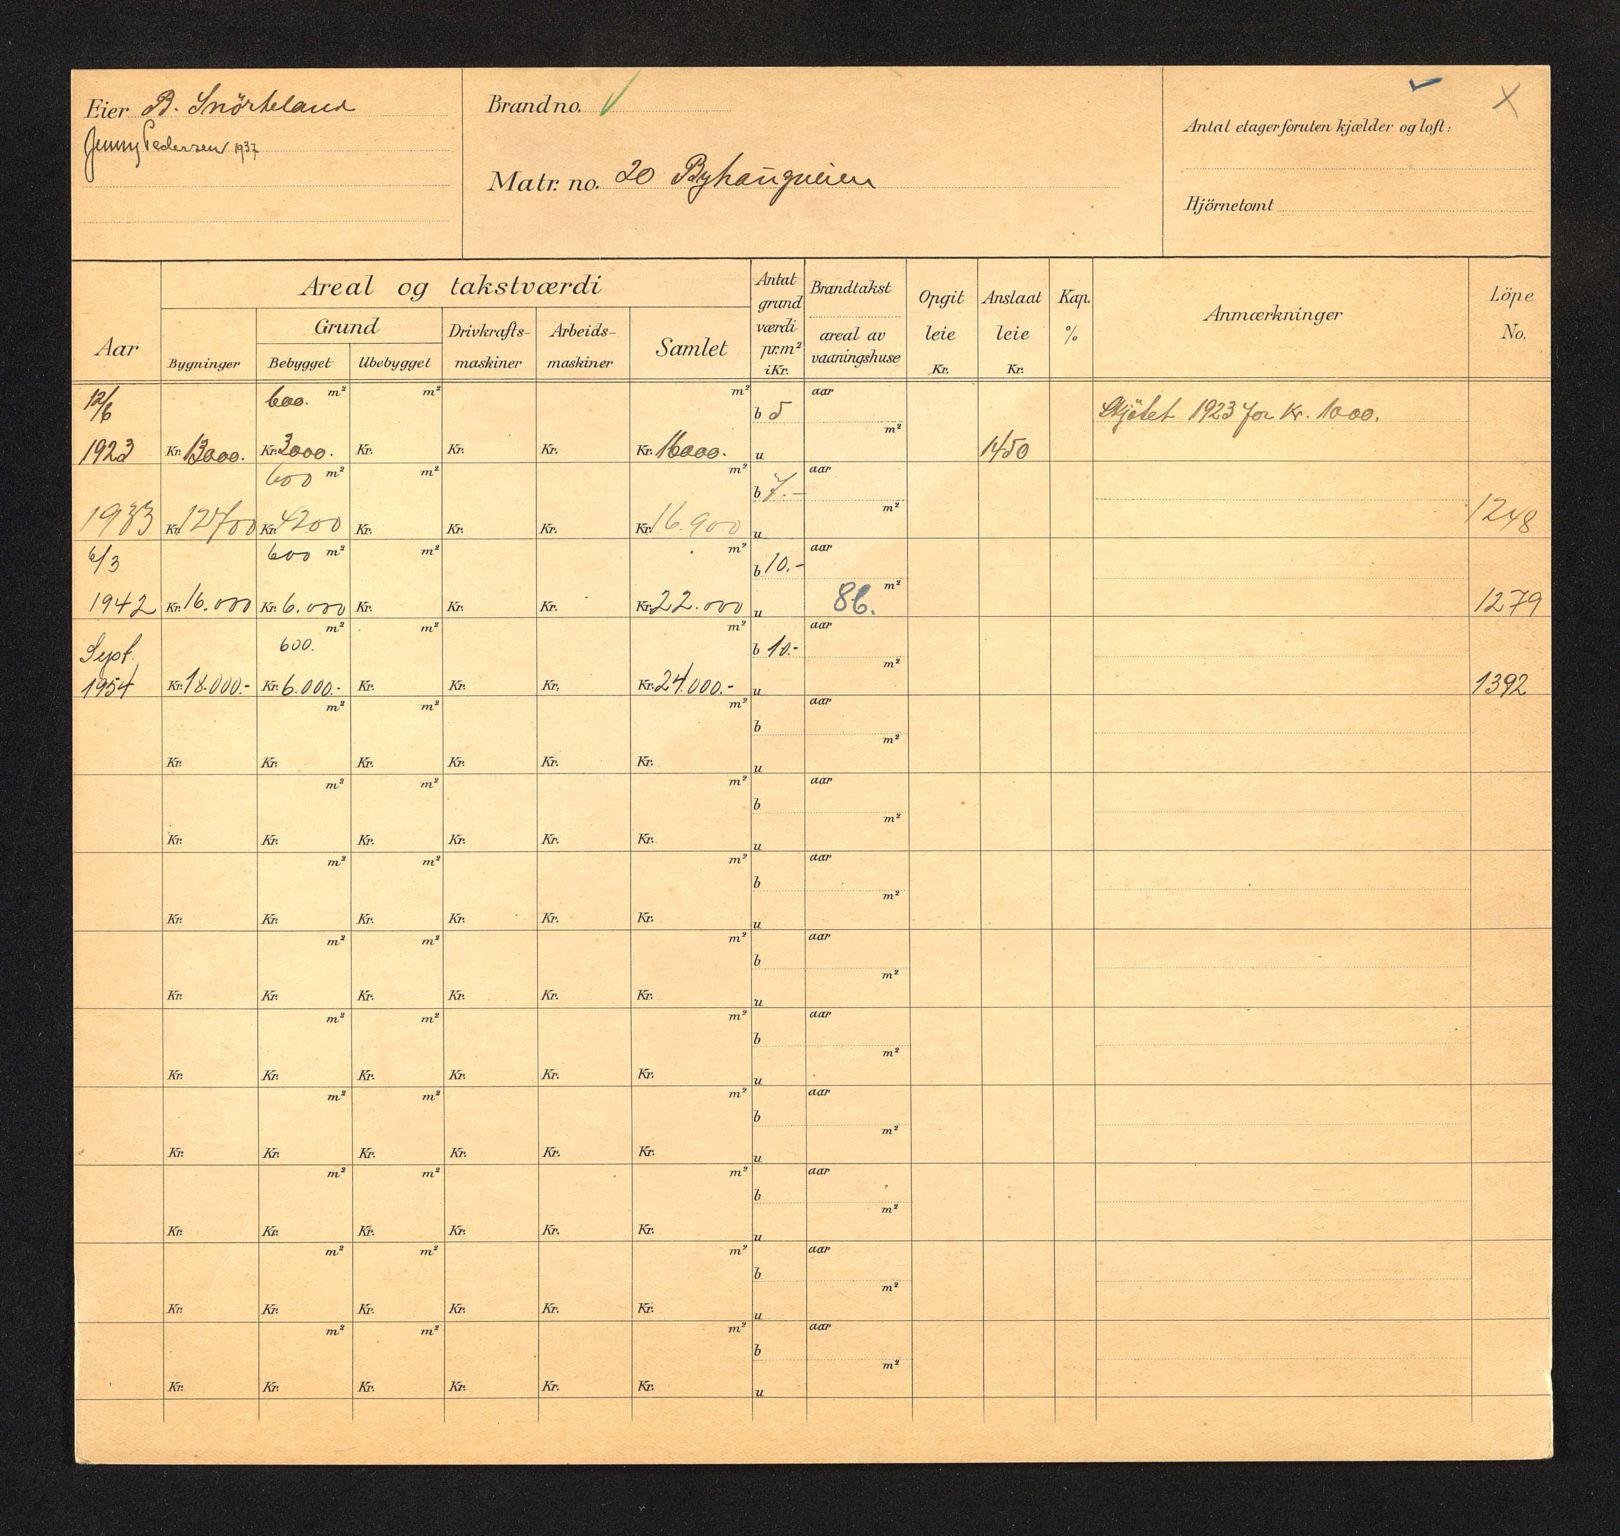 Eier B. Snörteland
Jenny Pedersen 1937
Brand no.
Matr. no. 20 Byhaugveien
Antal etager foruten kjælder og loft:
Hjörnetomt
Aar
Areal og takstværdi
Bygninger
Grund
Bebygget
Ubebygget
Drivkrafts-
maskiner
Arbeids-
maskiner
Samlet
Antat
grund
værdi
pr. m²
i Kr.
Brandtakst
areal av
vaaningshuse
Opgit
leie
Kr.
Anslaat
leie
Kr.
Kap.
%
Anmærkninger
Löpe
No.
12/6 600. m² m² m² b 5 aar Skjötet 1923 for Kr. 1000.
m²
1923 Kr. 13000. Kr. 3000. Kr. Kr. Kr. Kr. 16000. u 1450
600 m² m² m² b 7.- aar
m²
1933 Kr. 12700 Kr. 4200 Kr. Kr. Kr. Kr. 16.900 u 1248
6/3 600 m² m² m² b 10.- aar
m²
1942 Kr. 16.000 Kr. 6.000 Kr. Kr. Kr. Kr. 22.000 u 86. 1279
Sept. 600. m² m² m² b 10.- aar
m²
1954 Kr. 18.000.- Kr. 6.000.- Kr. Kr. Kr. Kr. 24.000.- u 1392
m² m² m² aar
b m²
Kr. Kr. Kr. Kr. Kr. Kr. u
m² m² m² aar
b m²
Kr. Kr. Kr. Kr. Kr. Kr. u
m² m² m² aar
b m²
Kr. Kr. Kr. Kr. Kr. Kr. u
m² m² m² aar
b m²
Kr. Kr. Kr. Kr. Kr. Kr. u
m² m² m² aar
b m²
Kr. Kr. Kr. Kr. Kr. Kr. u
m² m² m² aar
b m²
Kr. Kr. Kr. Kr. Kr. Kr. u
m² m² m² aar
b m²
Kr. Kr. Kr. Kr. Kr. Kr. u
m² m² m² aar
b m²
Kr. Kr. Kr. Kr. Kr. Kr. u
m² m² m² aar
b m²
Kr. Kr. Kr. Kr. Kr. Kr. u